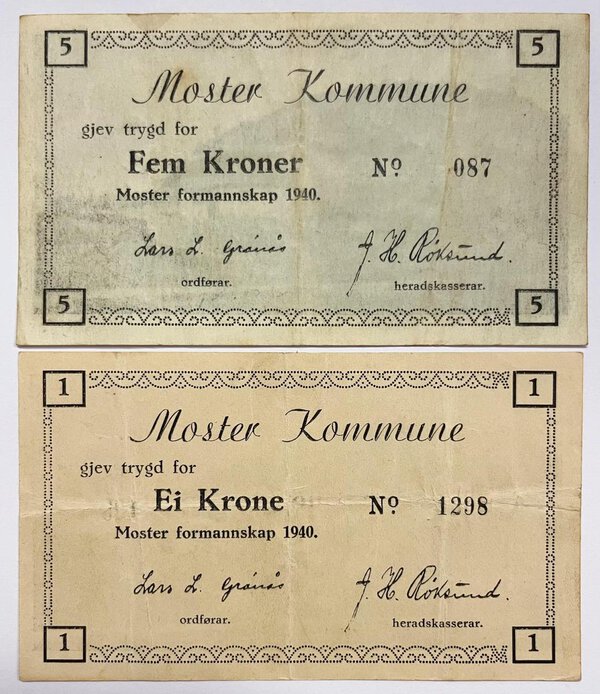 5 5
Moster Kommune
gjev trygd for
Fem Kroner Nº 087
Moster formannskap 1940.
Lars L. Grönås J. H. Röksund.
ordførar. heradskasserar.
5 5
1 1
Moster Kommune
gjev trygd for
Ei Krone Nº 1298
Moster formannskap 1940.
Lars L. Grönås J. H. Röksund.
ordførar. heradskasserar.
1 1